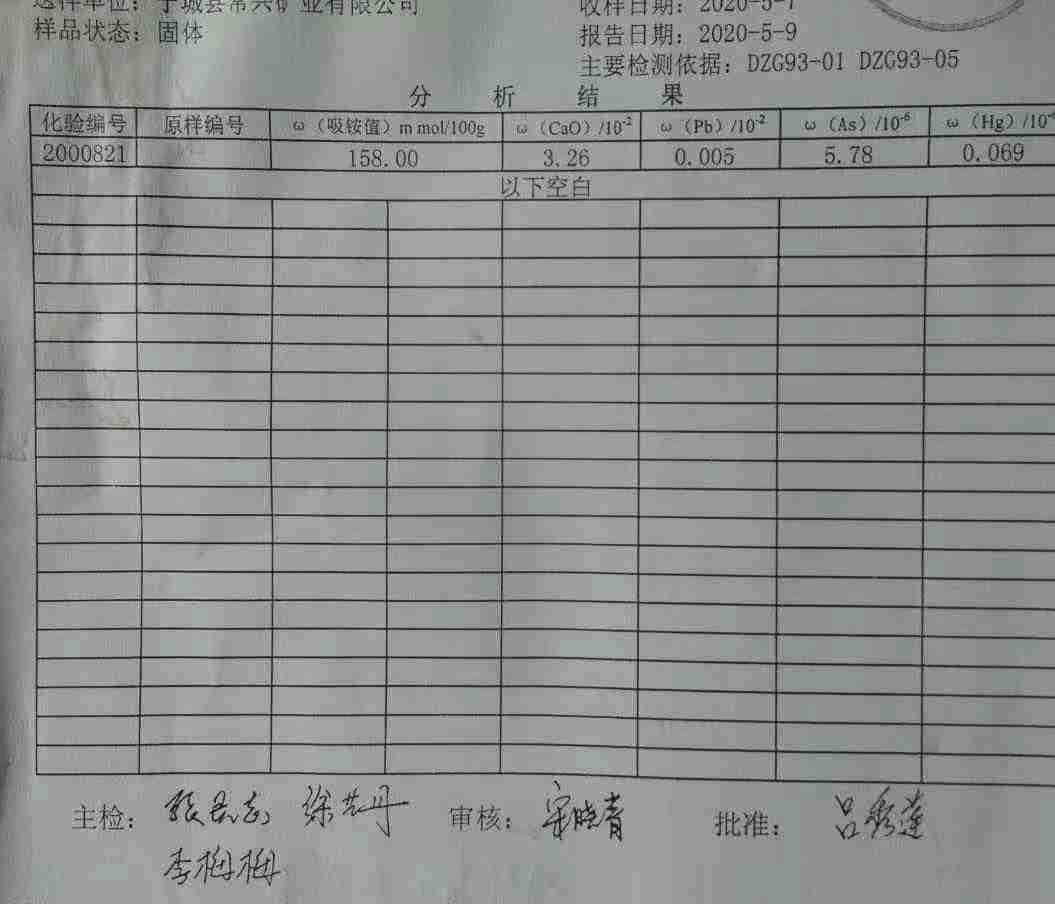 送样单位：宁城县常兴矿业有限公司
收样日期：2020-5-7
样品状态：固体
报告日期：2020-5-9
主要检测依据：DZG93-01 DZG93-05
分析结果
化验编号 原样编号 ω（吸铵值）m mol/100g ω（CaO）/10⁻² ω（Pb）/10⁻² ω（As）/10⁻⁶ ω（Hg）/10⁻⁶
2000821 158.00 3.26 0.005 5.78 0.069
以下空白
主检： 徐艺丹 审核：宋晓青 批准：吕秀莲
李梅梅